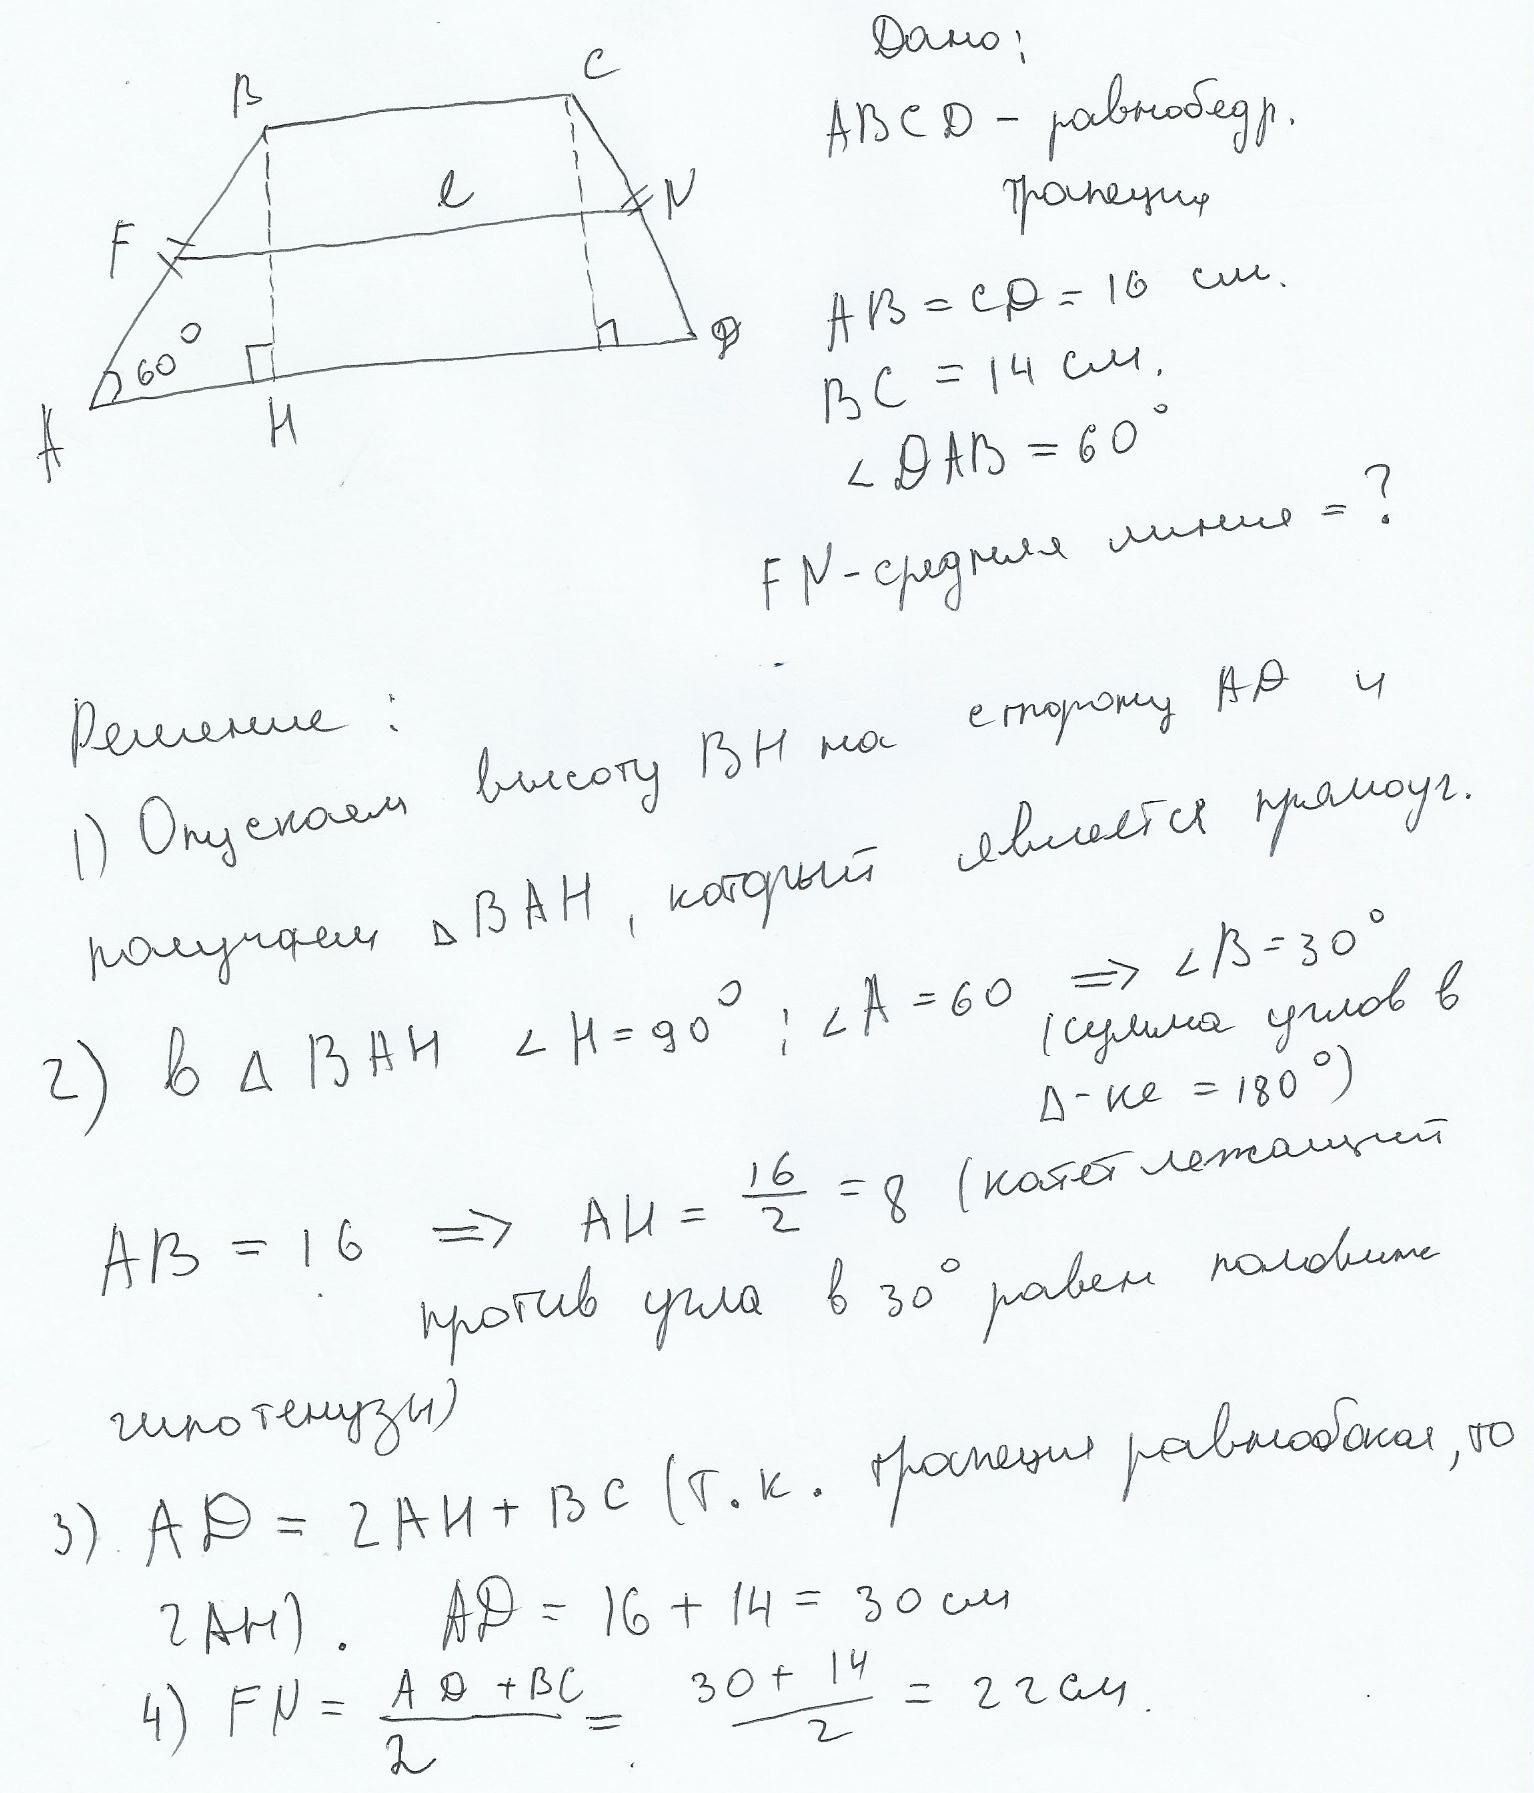 B
C
F
N
ℓ
60°
A
H
D
Дано:
ABCD – равнобедр.
трапеция
AB = CD = 16 см.
BC = 14 см.
∠DAB = 60°
FN – средняя линия = ?
Решение:
1) Опускаем высоту BH на сторону AD и
получаем △BAH, который является прямоуг.
2) В △BAH ∠H = 90°; ∠A = 60 => ∠B = 30°
(сумма углов в
△-ке = 180°)
AB = 16 => AH = 16/2 = 8 (катет лежащий
против угла в 30° равен половине
гипотенузы)
3) AD = 2AH + BC (т.к. трапеция равнобокая, то
2AH). AD = 16 + 14 = 30 см
4) FN = AD + BC / 2 = 30 + 14 / 2 = 22 см.